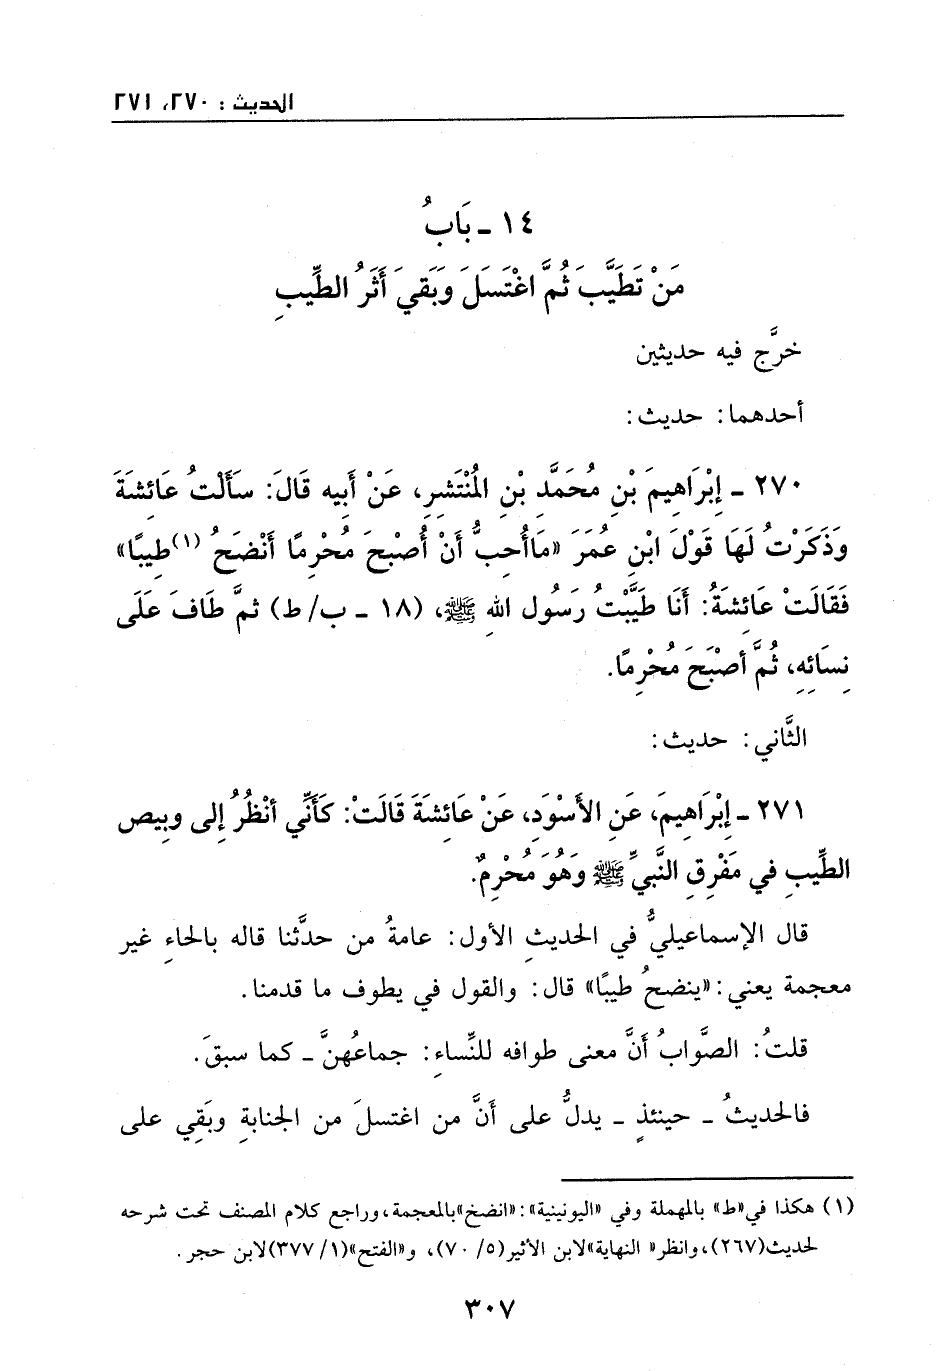 الحديث : ٢٧٠، ٢٧١
١٤ ـ بَابُ
مَنْ تَطَيَّبَ ثُمَّ اغْتَسَلَ وَبَقِيَ أَثَرُ الطِّيبِ
خرَّج فيه حديثين
أحدهما: حديث:
٢٧٠ ـ إِبْرَاهِيمَ بْنِ مُحَمَّدِ بْنِ المُنْتَشِرِ، عَنْ أَبِيه قَالَ: سَأَلْتُ عَائِشَةَ
وَذَكَرْتُ لَهَا قَوْلَ ابْنِ عُمَرَ «مَاأُحِبُّ أَنْ أُصْبحَ مُحْرِمًا أَنْضَحُ (١)طِيبًا»
فَقَالَتْ عَائِشَةُ: أَنَا طَيَّبْتُ رَسُول اللهِ ﷺ، (١٨ ـ ب/ط) ثمَّ طَافَ عَلَى
نِسَائِهِ، ثُمَّ أصْبَحَ مُحْرِمًا.
الثَّاني: حديث:
٢٧١ ـ إِبْرَاهِيمَ، عَنِ الأَسْوَدِ، عَنْ عَائِشَةَ قَالَتْ: كَأَنِّي أنْظُرُ إلى وبِيص
الطِّيبِ في مَفْرِقِ النَّبيِّ ﷺ وَهُوَ مُحْرِمٌ.
قال الإسماعيليُّ في الحديثِ الأول: عامةُ من حدَّثنا قاله بالحاءِ غير
معجمة يعني: «ينضحُ طيبًا» قال: والقول في يطوف ما قدمنا.
قلتُ: الصَّوابُ أنَّ معنى طوافه للنِّساءِ: جماعُهنَّ ـ كما سبقَ.
فالحديثُ ـ حينئذٍ ـ يدلُّ على أنَّ من اغتسلَ من الجنابةِ وبَقِي على
(١) هكذا في«ط» بالمهملة وفي «اليونينية»: «انضخ»بالمعجمة، وراجع كلام المصنف تحت شرحه
لحديث(٢٦٧)، وانظر« النهاية»لابن الأثير(٥/ ٧٠)، و«الفتح»(١/ ٣٧٧)لابن حجر .
٣٠٧